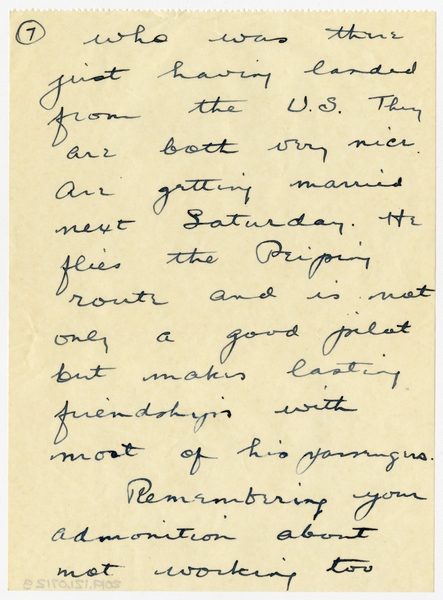 7
who was there
just having landed
from the U.S. They
are both very nice.
Are getting married
next Saturday. He
flies the Peiping
route and is not
only a good pilot
but makes lasting
friendships with
most of his passengers.
Remembering your
admonition about
not working too